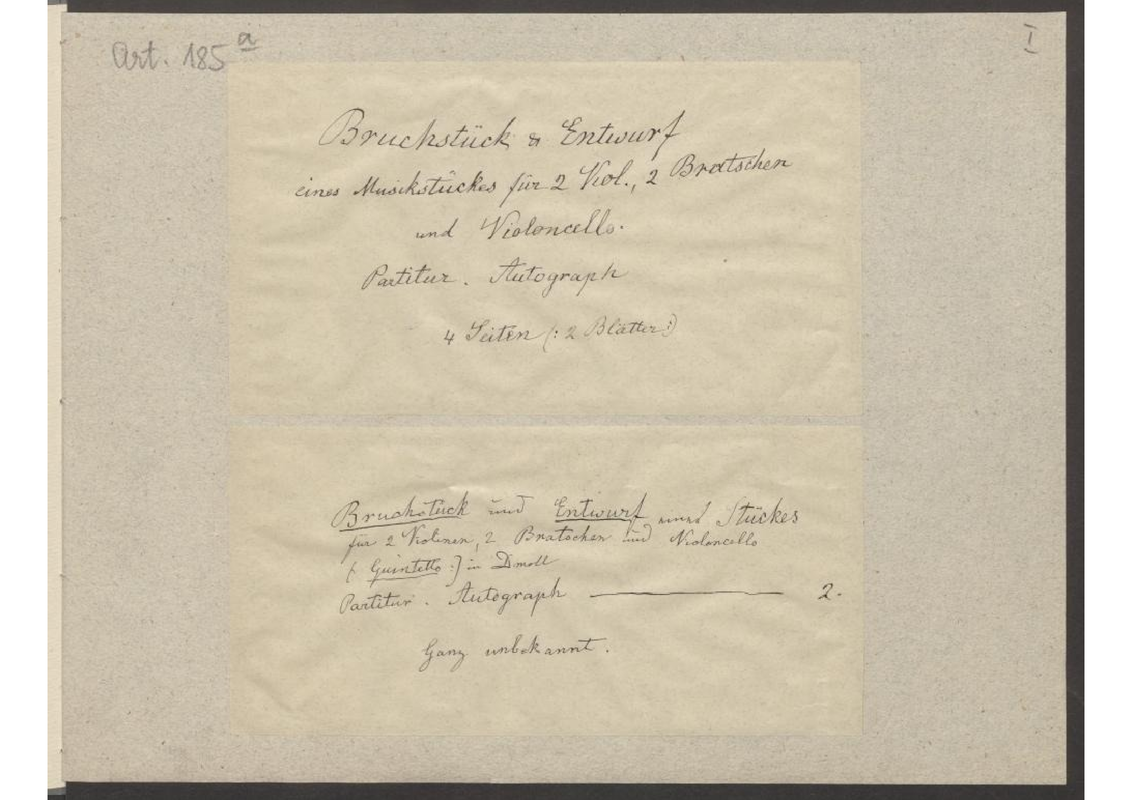 Art. 185 a
I
Bruchstück & Entwurf
eines Musikstückes für 2 Viol., 2 Bratschen
und Violoncello.
Partitur. Autograph
4 Seiten (: 2 Blätter :)
Bruchstück und Entwurf eines Stückes
für 2 Violinen, 2 Bratschen und Violoncello
(: Quintetto :) in Dmoll
Partitur. Autograph — 2.
Ganz unbekannt.